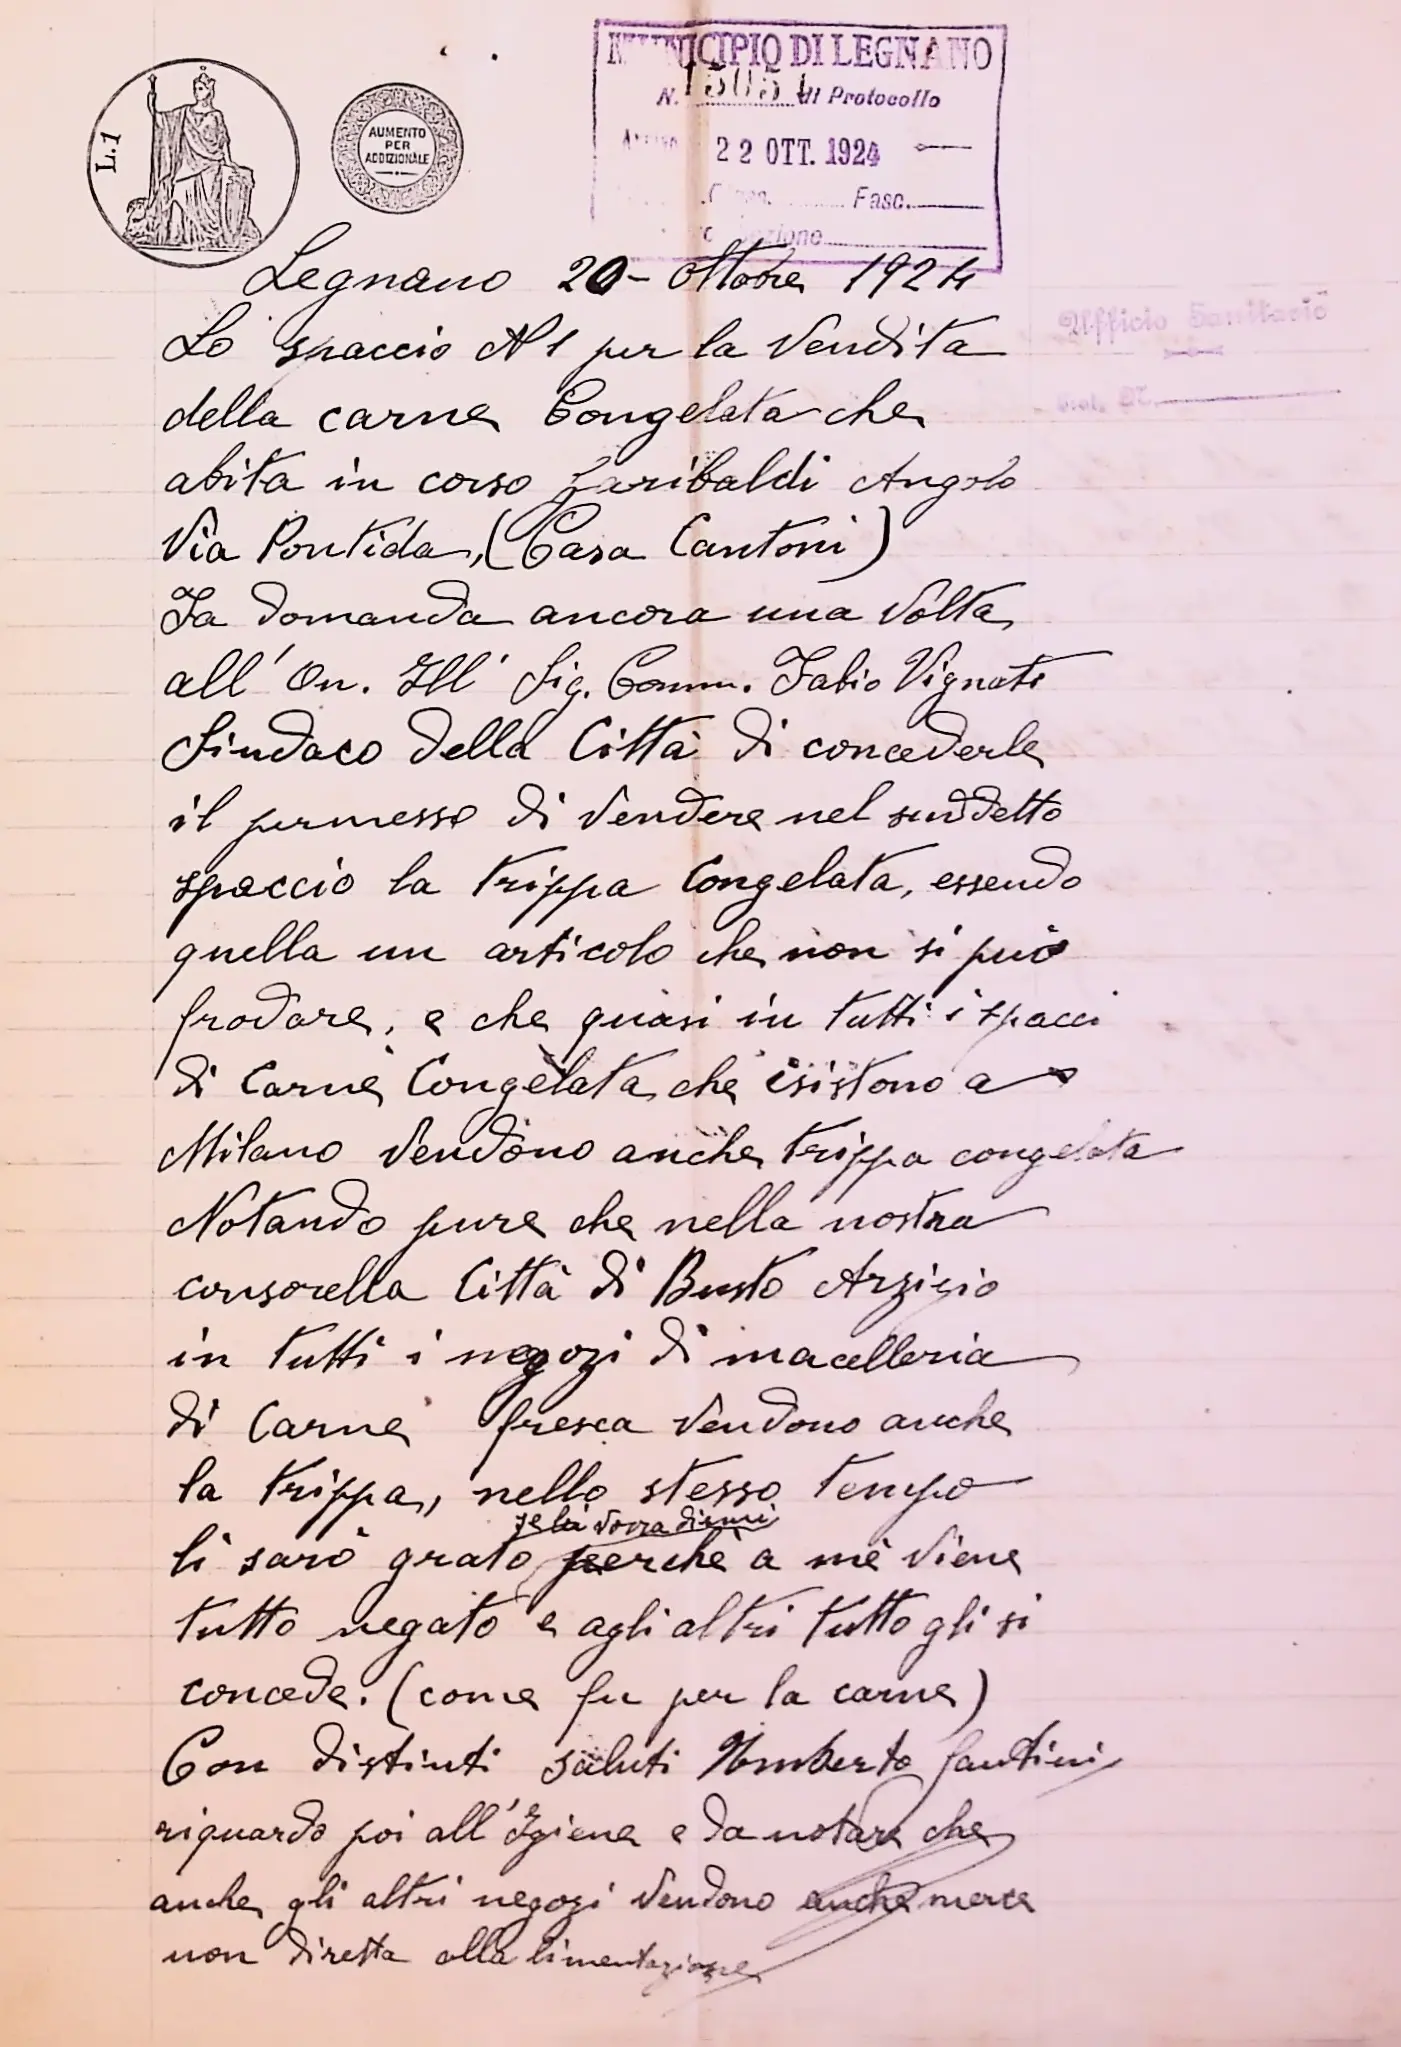 L.1
AUMENTO
PER
ADDIZIONALE
MUNICIPIO DI LEGNANO
N. di Protocollo
Arrivo 22 OTT. 1924
Fasc.
Legnano 20 - Ottobre 1924
Ufficio Sanitario
Lo spaccio N 1 per la Vendita
della carne Congelata che
abita in corso Garibaldi Angolo
Via Pontida, (Casa Cantoni)
Fa domanda ancora una Volta
all' On. Ill' Sig. Comm. Fabio Vignati
Sindaco della Città di concederle
il permesso di Vendere nel suddetto
spaccio la trippa Congelata, essendo
quella un articolo che non si può
frodare, e che quasi in tutti i spacci
di Carne Congelata che esistono a
Milano Vendono anche trippa congelata
Notando pure che nella nostra
consorella Città di Busto Arzizio
in tutti i negozi di macelleria
di Carne fresca Vendono anche
la trippa, nello stesso tempo
se lei vorra dirmi
li sarò grato perchè a me viene
tutto negato e agli altri tutto gli si
concede. (come fu per la carne)
Con distinti saluti Umberto Fantini
riguardo poi all'Igiene e da notare che
anche gli altri negozi Vendono anche merce
non diretta alla limentazione